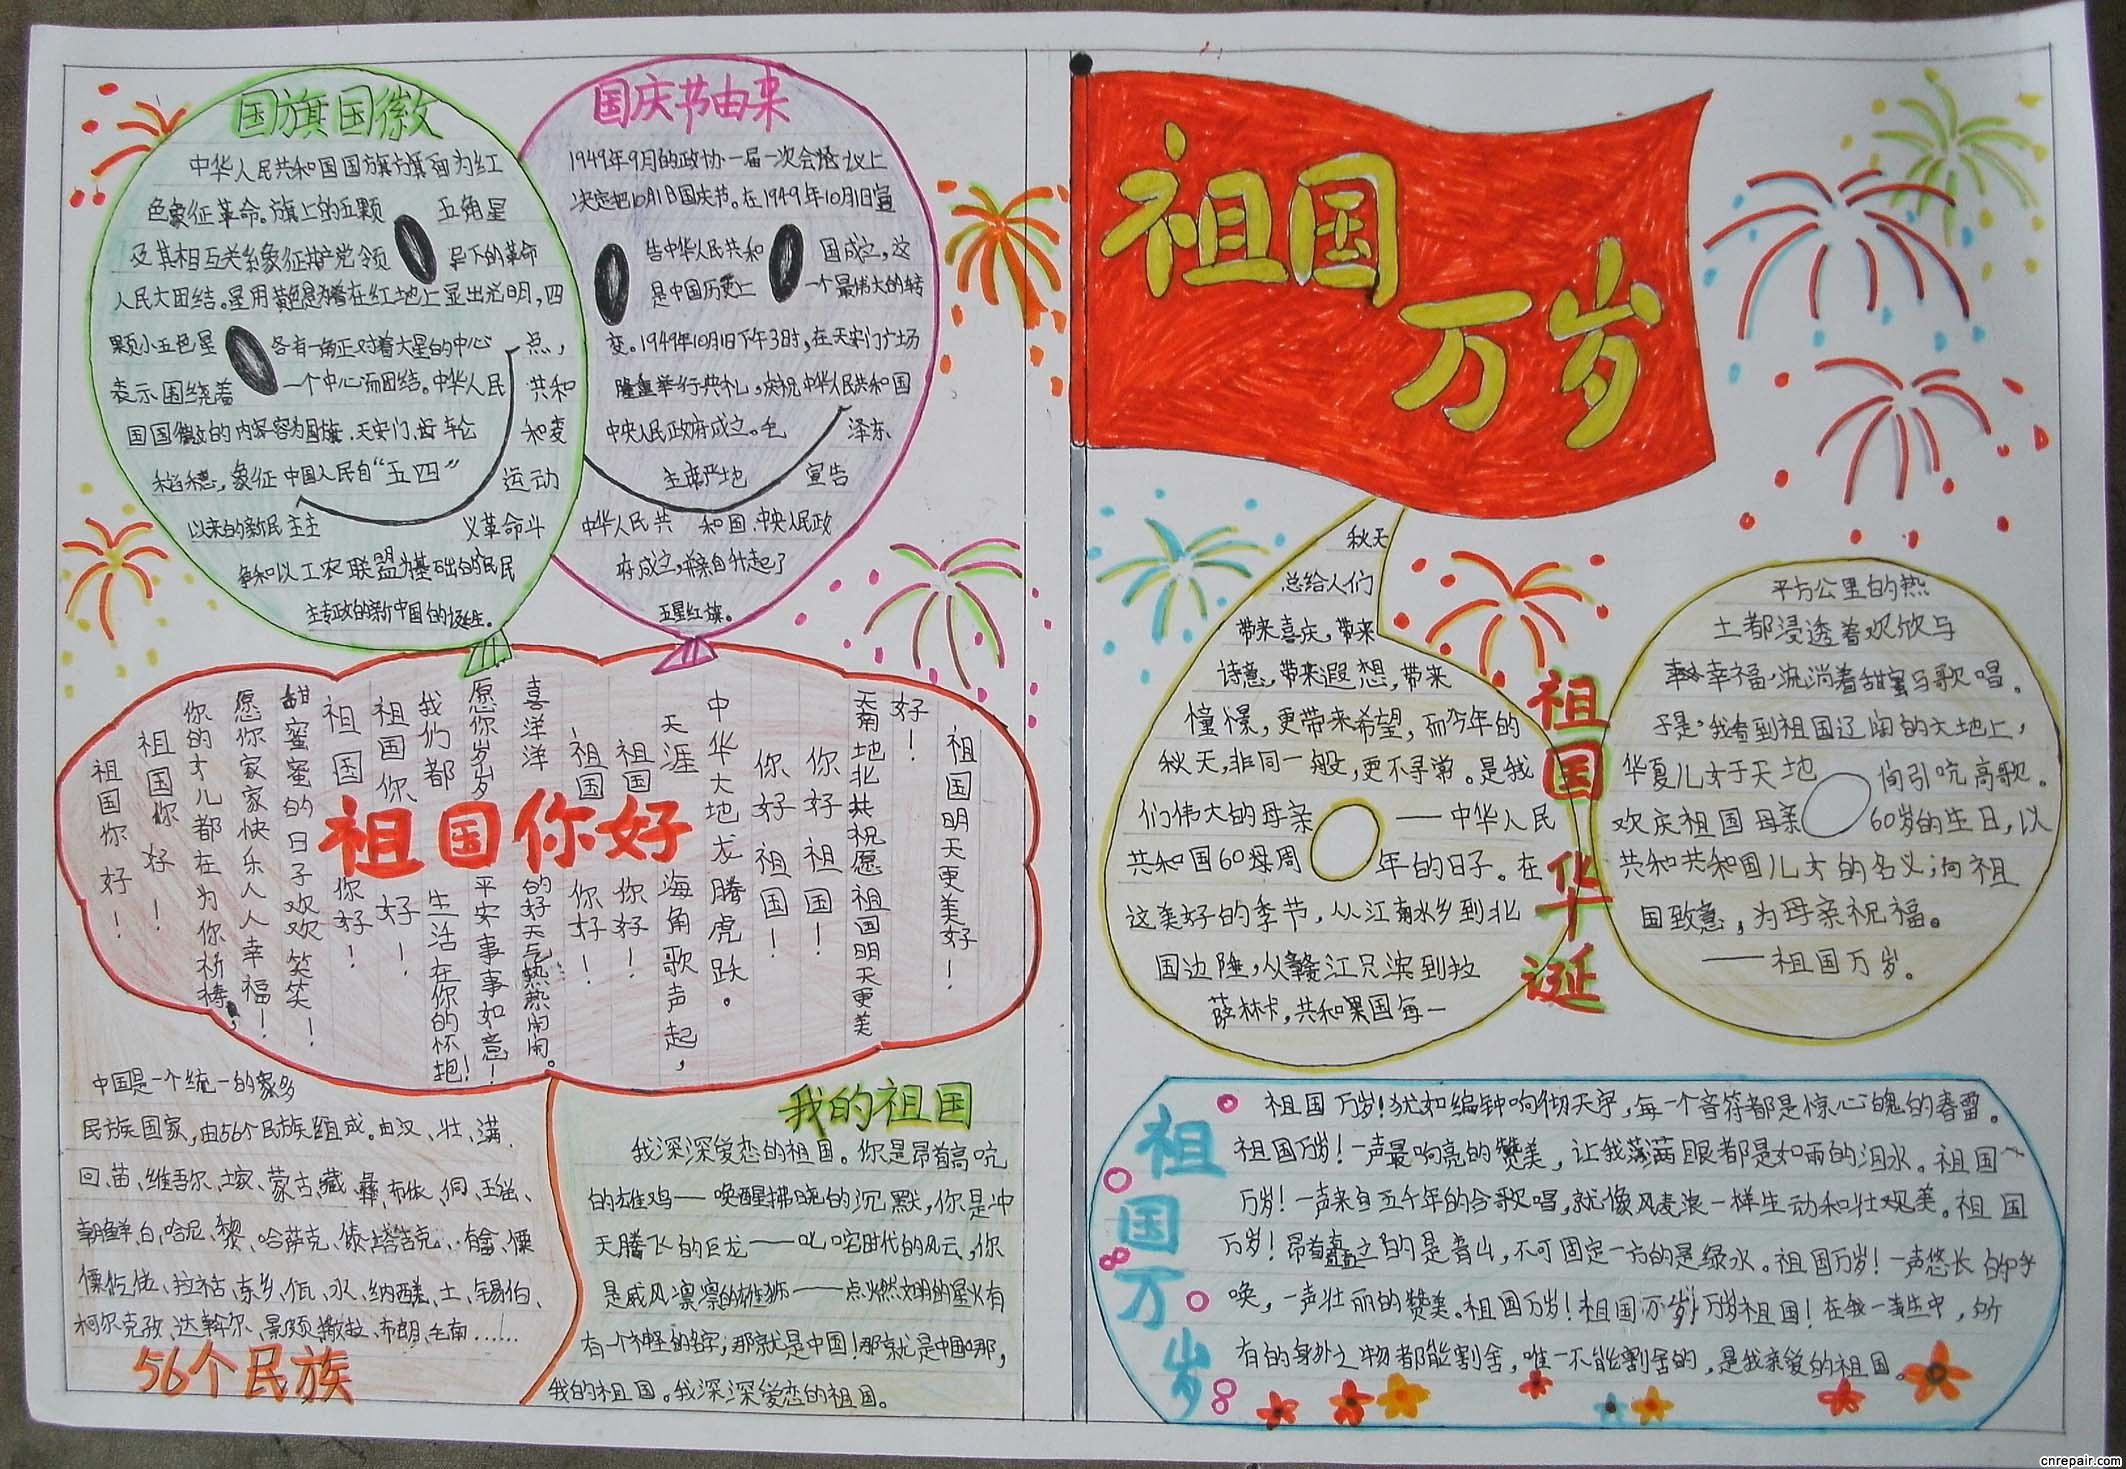 国旗国徽
中华人民共和国国旗旗面为红
色象征革命。旗上的五颗 五角星
及其相互关系象征共产党领 导下的革命
人民大团结。星用黄色是为着在红地上显出光明,四
颗小五色星 各有一角正对着大星的中心 点,
表示围绕着 一个中心而团结。中华人民 共和
国国徽的内容为国旗、天安门、齿轮 和麦
稻穗,象征中国人民自“五四” 运动
以来的新民主主 义革命斗
争和以工农联盟为基础的民
主专政的新中国的诞生。
国庆节由来
1949年9月的政协一届一次会议上
决定把10月1日国庆节。在1949年10月1日宣
告中华人民共和 国成立,这
是中国历史上 一个最伟大的转
变。1949年10月1日下午3时,在天安门广场
隆重举行典礼。庆祝中华人民共和国
中央人民政府成立。毛 泽东
主席严地 宣告
中华人民共 和国、中央人民政
府成立,并亲自升起了
五星红旗。
祖国你好
祖国明天更美好!
好!
天南地北共祝愿祖国明天更美
你好祖国!
你好祖国!
中华大地龙腾虎跃。
天涯海角歌声起,
祖国你好!
祖国你好!
喜洋洋的好天气热热闹闹。
愿你岁岁平安事事如意!
我们都生活在你的怀抱!
祖国你好!
祖国你好!
甜蜜蜜的日子欢欢笑笑!
愿你家家快乐人人幸福!
你的女儿都在为你祈祷,
祖国你好!
祖国你好!
中国是一个统一的家多
民族国家,由56个民族组成。由汉、壮、满、
回、苗、维吾尔、土家、蒙古、藏、彝、布依、侗、瑶、
朝鲜、白、哈尼、黎、哈萨克、傣、塔吉克、畲、傈
僳、仡佬、拉祜、东乡、佤、水、纳西、羌、土、锡伯、
柯尔克孜、达斡尔、景颇、撒拉、布朗、毛南……
56个民族
我的祖国
我深深爱恋的祖国。你是昂首高吭
的雄鸡——唤醒拂晓的沉默,你是冲
天腾飞的巨龙——叱咤时代的风云,你
是威风凛凛的雄狮——点燃文明的星火有
有一个神圣的名字,那就是中国!那就是中国啊,
我的祖国。我深深爱恋的祖国。
祖国
万岁
秋天
总给人们
带来喜庆,带来
诗意,带来遐想,带来
憧憬,更带来希望,而今年的
秋天,非同一般,更不寻常。是我
们伟大的母亲 ——中华人民
共和国60周 年的日子。在
这美好的季节,从江南水乡到北
国边陲,从赣江只滨到拉
萨林卡,共和国每一
祖国华诞
平方公里的热
土都浸透着欢欣与
幸福,流淌着甜蜜与歌唱。
于是,我看到祖国辽阔的大地上,
华夏儿女于天地 间引吭高歌。
欢庆祖国母亲 60岁的生日,以
共和共和国儿女的名义;向祖
国致意,为母亲祝福。
——祖国万岁。
祖国万岁
祖国万岁!犹如编钟响彻天宇,每一个音符都是惊心魄的春雷。
祖国万岁!一声最响亮的赞美,让我满眼都是如雨的泪水。祖国
万岁!一声来自五千年的合歌唱,就像风麦浪一样生动和壮观美。祖国
万岁!昂首直立的是青山,不可固定一方的是绿水。祖国万岁!一声悠长的呼
唤,一声壮丽的赞美。祖国万岁!祖国万岁!万岁祖国!在我一生中,所
有的身外之物都能割舍,唯一不能割舍的,是我亲爱的祖国。
cnrepair.com